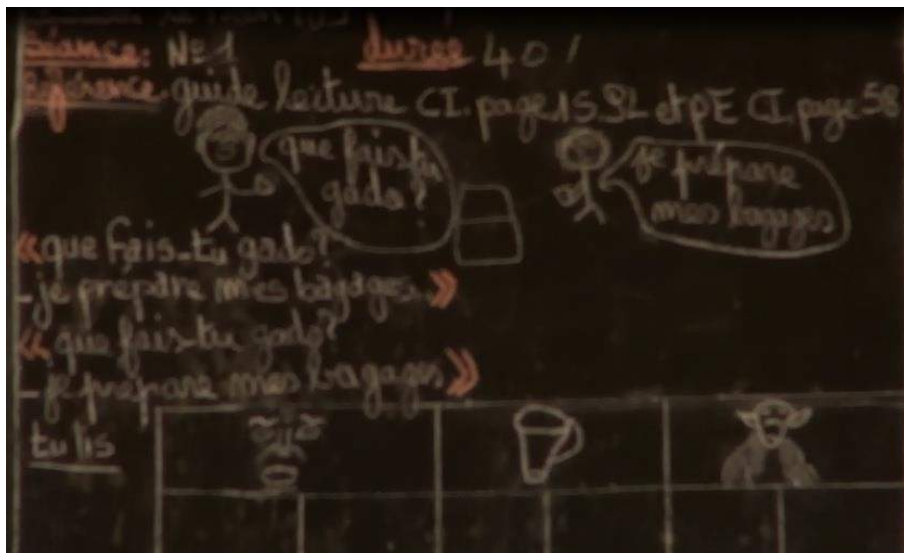 Séance: N° 1 durée 40'
Référence guide lecture CI. page 15.SL et pE CI. page 58
que fais-tu
gado?
je prépare
mes bagages
« que fais-tu gado?
- je prépare mes bagages. »
« que fais-tu gado?
- je prépare mes bagages »
tu lis